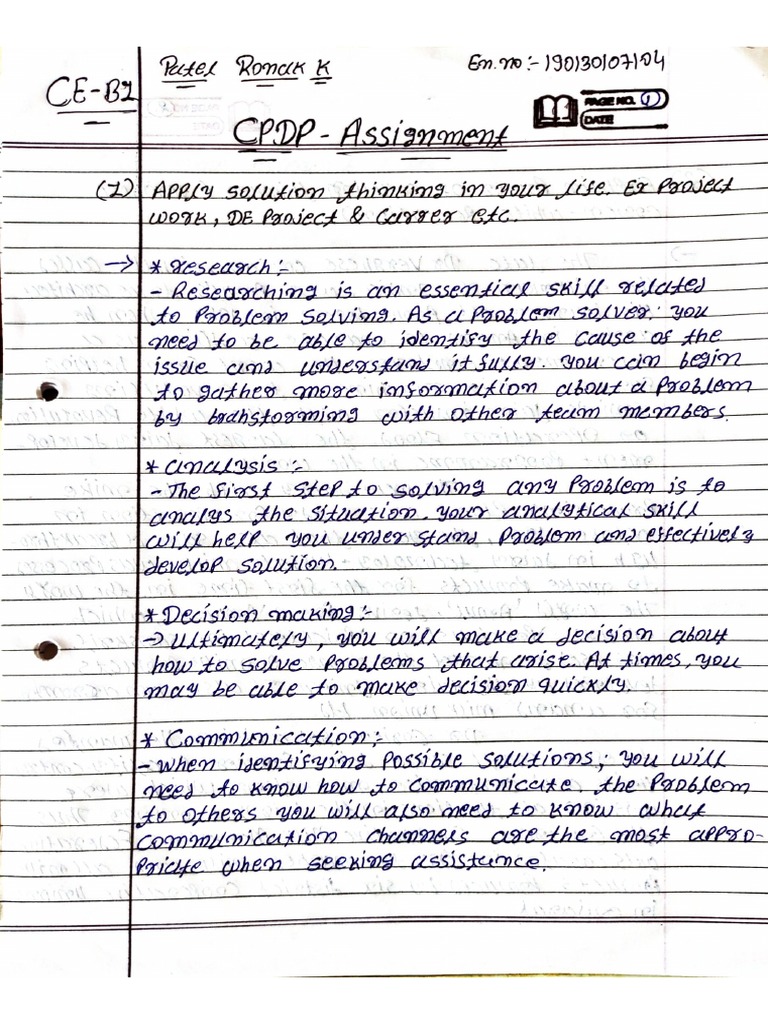 Patel Ronak K
En.no:- 190130107104
CE-B1
PAGE NO. 1
DATE
CPDP - Assignment
(1) Apply solution thinking in your life. Ex Project
work, DE Project & Carrer etc.
→ * research:-
- Researching is an essential skill related
to Problem solving. As a Problem solver, you
need to be able to identify the cause of the
issue and understand it fully. you can begin
to gather more information about a problem
by brainstorming with other team members.
* analysis:-
- The first step to solving any Problem is to
analys the situation. your analytical skill
will help you under stand Problem and effectively
develop solution.
* Decision making:-
→ Ultimately, you will make a decision about
how to solve Problems that arise. At times, you
may be able to make decision quickly.
* Communication:-
- when identifying possible solutions, you will
need to know how to communicate. the Problem
to others you will also need to know what
communication channels are the most appro-
priate when seeking assistance.